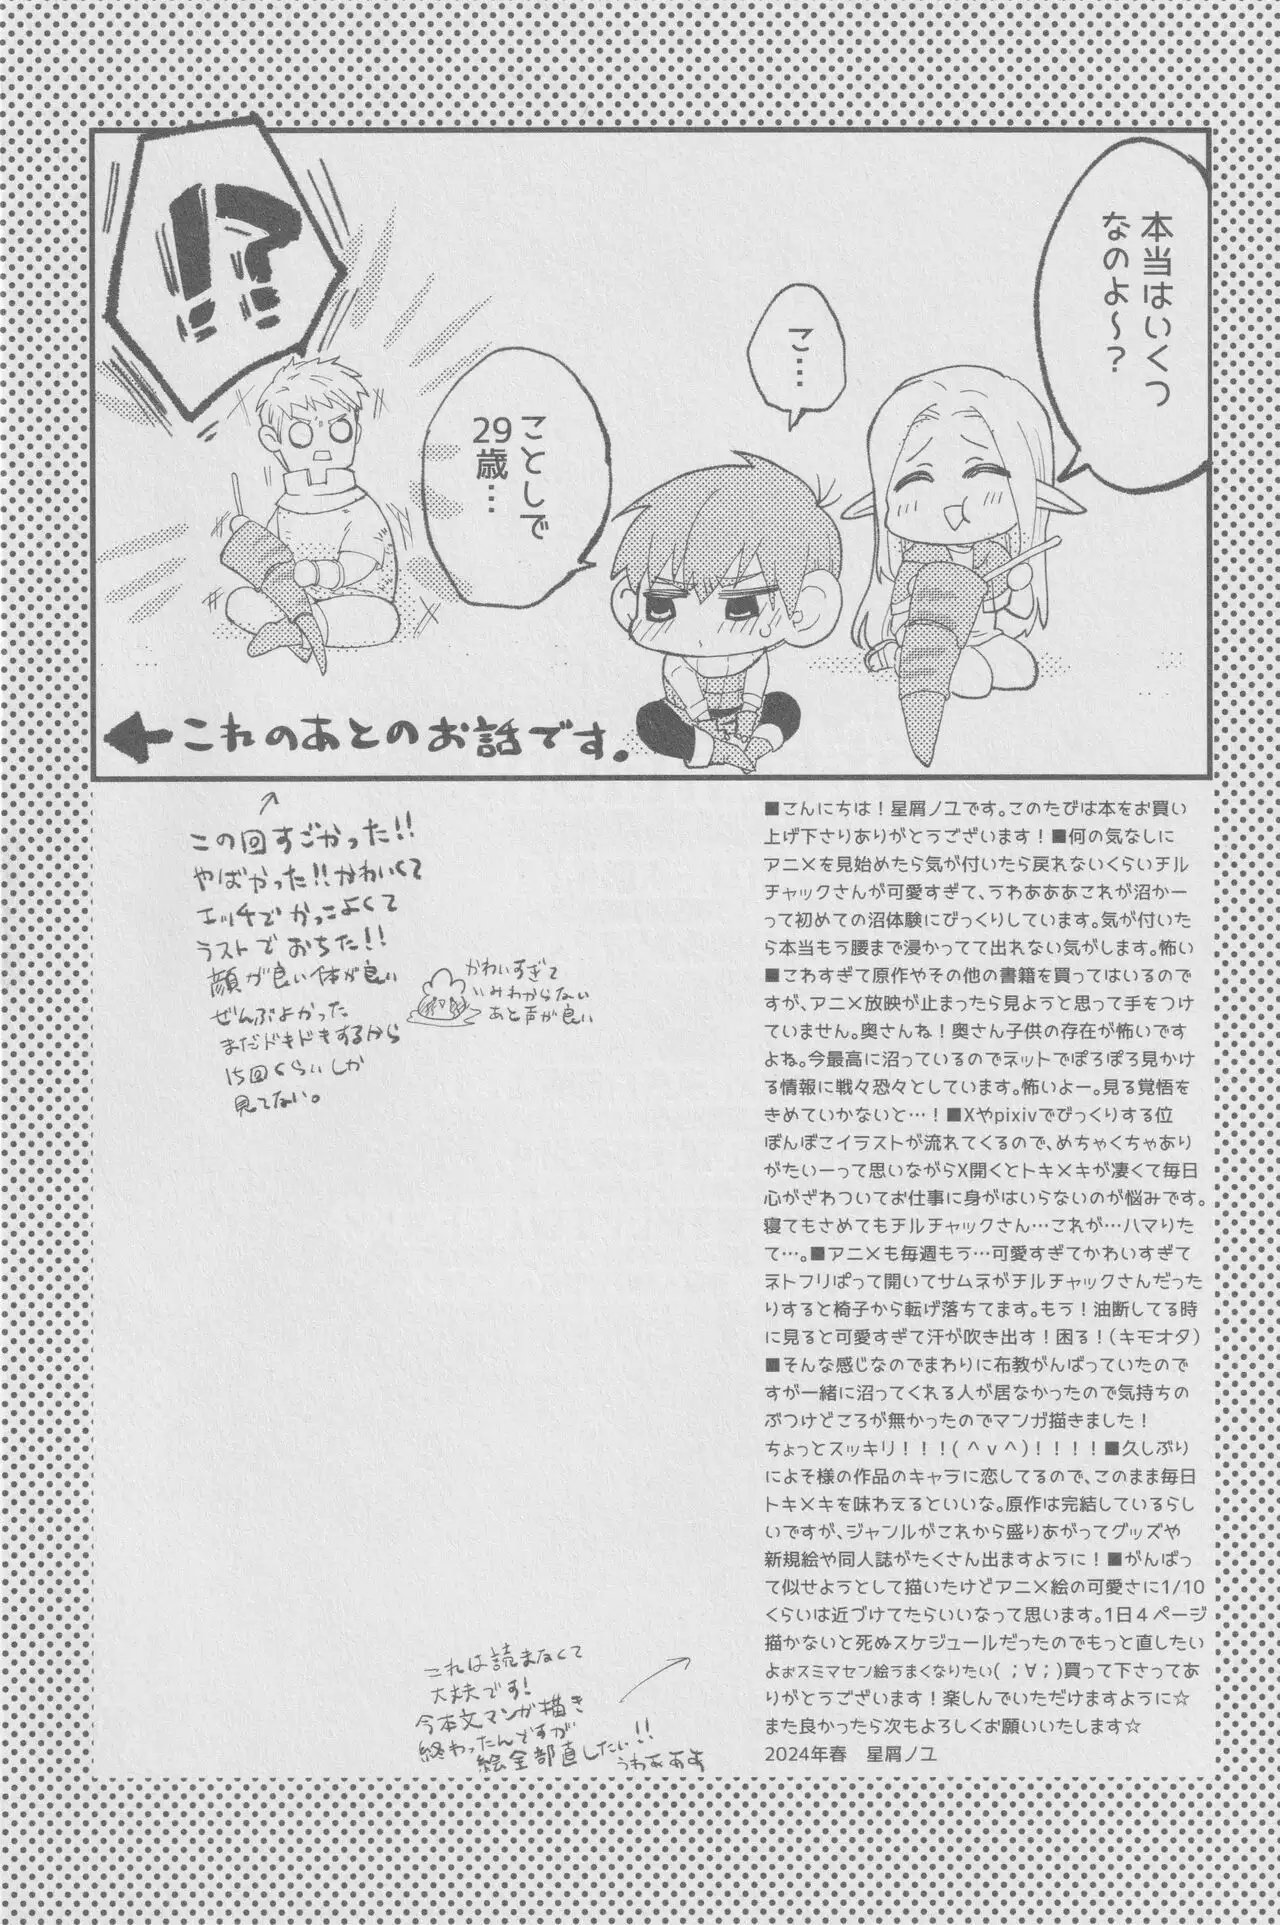 本当はいくつ
なのよ～？
こ…
ことしで
29歳…
!?
←これのあとのお話です。
この回すごかった!!
やばかった!!かわいくて
エッチでかっこよくて
ラストでおちた!!
顔が良い体が良い
ぜんぶよかった
まだドキドキするから
15回くらいしか
見てない。
かわいすぎて
いみわからない
あと声が良い
■こんにちは！星屑ノユです。このたびは本をお買い
上げ下さりありがとうございます！■何の気なしに
アニメを見始めたら気が付いたら戻れないくらいチル
チャックさんが可愛すぎて、うわあああこれが沼かー
って初めての沼体験にびっくりしています。気が付いた
ら本当もう腰まで浸かってて出れない気がします。怖い
■こわすぎて原作やその他の書籍を買ってはいるので
すが、アニメ放映が止まったら見ようと思って手をつけ
ていません。奥さんね！奥さん子供の存在が怖いです
よね。今最高に沼っているのでネットでぽろぽろ見かけ
る情報に戦々恐々としています。怖いよー。見る覚悟を
きめていかないと…！■Xやpixivでびっくりする位
ぽんぽこイラストが流れてくるので、めちゃくちゃあり
がたいーって思いながらX開くとトキメキが凄くて毎日
心がざわついてお仕事に身がはいらないのが悩みです。
寝てもさめてもチルチャックさん…これが…ハマりた
て…。■アニメも毎週もう…可愛すぎてかわいすぎて
ネトフリぱって開いてサムネがチルチャックさんだった
りすると椅子から転げ落ちてます。もう！油断してる時
に見ると可愛すぎて汗が吹き出す！困る！（キモオタ）
■そんな感じなのでまわりに布教がんばっていたので
すが一緒に沼ってくれる人が居なかったので気持ちの
ぶつけどころが無かったのでマンガ描きました！
ちょっとスッキリ！！！(＾ｖ＾)！！！！■久しぶり
によそ様の作品のキャラに恋してるので、このまま毎日
トキメキを味わえるといいな。原作は完結しているらし
いですが、ジャンルがこれから盛りあがってグッズや
新規絵や同人誌がたくさん出ますように！■がんばっ
て似せようとして描いたけどアニメ絵の可愛さに1/10
くらいは近づけてたらいいなって思います。1日４ページ
描かないと死ぬスケジュールだったのでもっと直したい
よぉスミマセン絵うまくなりたい(；∀；)買って下さってあ
りがとうございます！楽しんでいただけますように☆
また良かったら次もよろしくお願いいたします☆
2024年春　星屑ノユ
これは読まなくて
大丈夫です！
今本文マンガ描き
終わったんですが
絵全部直したい!!
うわぁああ